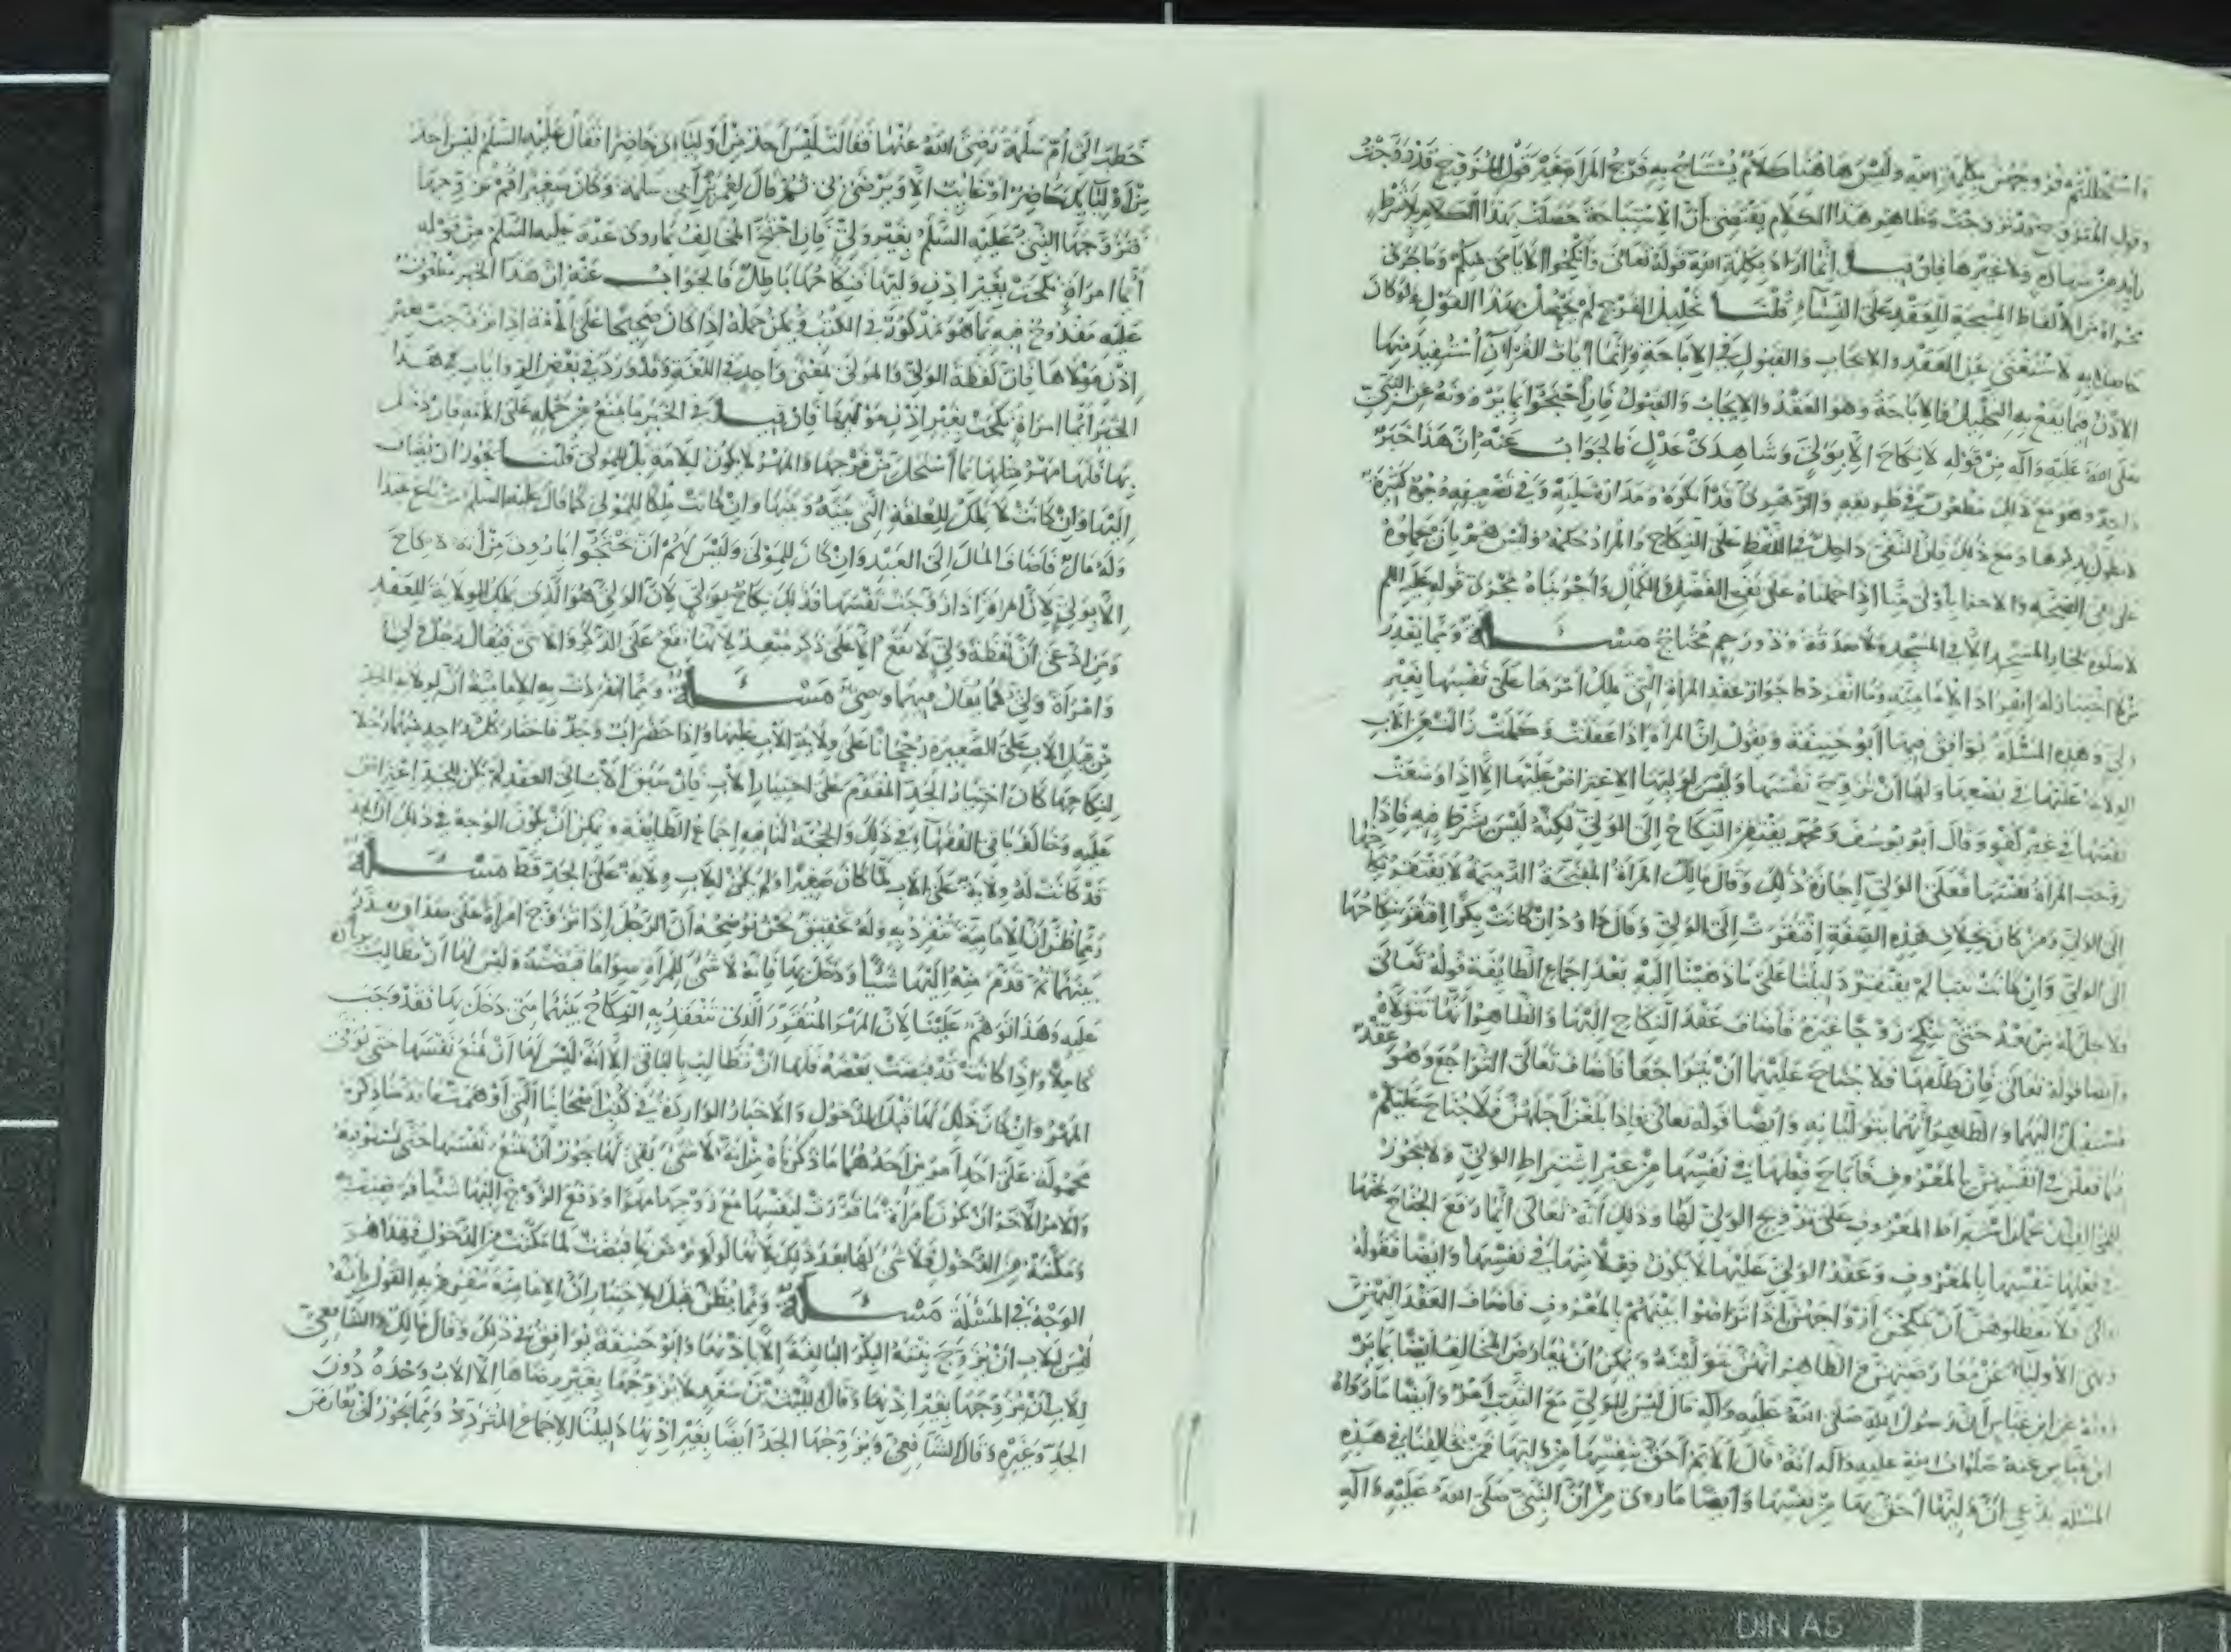 واستحللتم فروجهن بكلمة الله وليس هاهنا كلام يستباح به فرج المرأة غير قول المزوج قد زوجت
وقول المتزوج قد تزوجت وظاهر هذا الكلام يقتضي أن الاستباحة حصلت بهذا الكلام بلا شرط
زايد من شهادة ولا غيرها فإن قيل إنما أراد بكلمة الله قوله تعالى وأنكحوا الأيامى منكم وما جرى
مجراه من الألفاظ المبيحة للعقد على النساء قلنا تحليل الفرج لم يحصل بهذا القول ولو كان
حاصلا به لاستغنى عن العقد والإيجاب والقبول في الإباحة وإنما آيات القرآن استفيد منها
الإذن فيما يقع به التحليل والإباحة وهو العقد والإيجاب والقبول فإن احتجوا بما يروونه عن النبي
صلى الله عليه وآله من قوله لا نكاح إلا بولي وشاهدي عدل فالجواب عنه إن هذا خبر
واحد وهو مع ذلك مطعون في طريقه والزهري قد أنكره ومداره عليه وفي تضعيفه وجوه كثيرة
لا نطول بذكرها ومع ذلك فإن النفي داخل في اللفظ على النكاح والمراد حكمه وليس هم بأن يحملوه
على نفي الصحة والإجزاء بأولى منا إذا حملناه على نفي الفضل والكمال وأجريناه مجرى قوله عليه السلم
لا صلوة لجار المسجد إلا في المسجد ولا صدقة وذو رحم محتاج مسئلة ومما يقدر
من لا اختبار له انفراد الإمامية وما انفردوا جواز عقد المرأة التي تملك أمرها على نفسها بغير
ولي وهذه المسئلة يوافق فيها أبو حنيفة ويقول إن المرأة إذا عقلت وكملت زالت عن الأب
الولاية عليها في بضعها ولها أن تزوج نفسها وليس لوليها الاعتراض عليها إلا إذا وضعت
نفسها في غير كفو وقال أبو يوسف ومحمد يفتقر النكاح إلى الولي لكنه ليس بشرط فيه فإذا
زوجت المرأة نفسها فعلى الولي إجازة ذلك وقال مالك المرأة المقبحة الذميمة لا يفتقر نكاحها
إلى الولي ومن كان بخلاف هذه الصفة افتقرت إلى الولي وقال داود إن كانت بكرا افتقر نكاحها
إلى الولي وإن كانت ثيبا لم يفتقر دليلنا على ما ذهبنا إليه بعد إجماع الطايفة قوله تعالى
فلا تحل له من بعد حتى تنكح زوجا غيره فأضاف عقد النكاح إليها والظاهر أنها تتولاه
وأيضا قوله تعالى فإن طلقها فلا جناح عليهما أن يتراجعا فأضاف تعالى التراجع وهو عقد
مستقل إليهما والظاهر أنهما يتوليانه وأيضا قوله تعالى فإذا بلغن أجلهن فلا جناح عليكم
فيما فعلن في أنفسهن بالمعروف فأباح فعلها في نفسها من غير اشتراط الولي ولا يجوز
للمخالف أن يحمل اشتراط المعروف على تزويج الولي لها وذلك أنه تعالى إنما رفع الجناح عنها
في فعلها بنفسها بالمعروف وعقد الولي عليها لا يكون فعلا منها في نفسها وأيضا فقوله
تعالى فلا تعضلوهن أن ينكحن أزواجهن إذا تراضوا بينهم بالمعروف فأضاف العقد إليهن
ونهى الأولياء عن معارضتهن والظاهر أنهن يتولينه ويمكن أن يعارض المخالف أيضا بما يرو
ونه عن ابن عباس أن رسول الله صلى الله عليه وآله قال ليس للولي مع الثيب أمر وأيضا ما رواه
ابن عباس عنه صلوات الله عليه وآله أنه قال الأيم أحق بنفسها من وليها فمن يخالفنا في هذه
المسئلة يدعي أن وليها أحق بها من نفسها وأيضا ما روي من أن النبي صلى الله عليه وآله
خطب إلى أم سلمة رضي الله عنها فقالت ليس أحد من أوليائي حاضرا فقال عليه السلم ليس أحد
من أوليائك حاضرا أو غايبا إلا ويرضى بي ثم قال لعمر بن أبي سلمة وكان صغيرا قم فزوجها
فتزوجها النبي عليه السلم بغير ولي فإن احتج المخالف بما روي عنه عليه السلم من قوله
أيما امرأة نكحت بغير إذن وليها فنكاحها باطل فالجواب عنه إن هذا الخبر مطعون
عليه مقدوح فيه بما هو مذكور في الكتب ويمكن حمله إذا كان صحيحا على الأمة إذا تزوجت بغير
إذن مولاها فإن لفظة الولي والمولى بمعنى واحد في اللغة وقد ورد في بعض الروايات في هذا
الخبر أيما امرأة نكحت بغير إذن مواليها فإن قيل في الخبر ما يمنع من حمله على الأمة فإن دخل
بها فلها مهر مثلها بما استحل من فرجها والمهر لا يكون للأمة بل للمولى قلنا يجوز أن يضاف
إليها وإن كانت لا تملك للعلقة التي بينه وبينها وإن كانت ملكا للمولى كما قال عليه السلم من باع عبدا
وله مال فأضاف المال إلى العبد وإن كان للمولى وليس لهم أن يحتجوا بما يروون من أنه لا نكاح
إلا بولي لأن المرأة إذا زوجت نفسها فذلك نكاح بولي لأن الولي هو الذي يملك الولاية للعقد
ومن ادعى أن لفظة ولي لا تقع إلا على ذكر مبعد لأنها تقع على الذكر والأنثى فيقال رجل ولي
وامرأة ولي كما يقال فيهما وصي مسئلة ومما انفردت به الإمامية أن لولاية الجد
من قبل الأب على الصغيرة رجحانا على ولاية الأب عليها وإذا حضر أب وجد فاختار كل واحد منهما رجلا
لنكاحها كان اختيار الجد المقدم على اختيار الأب فإن سبق الأب إلى العقد لم يكن للجد اعتراض
عليه وخالف باقي الفقهاء في ذلك والحجة لنا فيه إجماع الطايفة ويمكن أن يكون الوجه في ذلك أن الجد
قد كانت له ولاية على الأب لما كان صغيرا ولم يكن للأب ولاية على الجد قط مسئلة
ومما ظن أن الإمامية تنفرد به وله تحقيق نحن نوضحه أن الرجل إذا تزوج امرأة على مقداره بعد
بينهما ثم قدم منه إليها شيئا ودخل بها فإنه لا شيء للمرأة سوا ما قبضته وليس لها أن تطالب بزيادة
عليه وهذا توهم علينا لأن المهر المتقرر الذي ينعقد به النكاح بينهما متى دخل بها فقد وجب
كاملا وإذا كانت قد قبضت بعضه فلها أن تطالب بالباقي إلا أنه ليس لها أن تمنع نفسها حتى توفى
المهر وإن كان ذلك لها قبل الدخول والأخبار الواردة في كتب أصحابنا التي أوهمت
محمولة على أحد أمرين أحدهما ما ذكرناه من أنه لا شيء بقي لها يجوز أن تمنع نفسها حتى تستوفيه
والأمر الآخر أن يكون امرأة ما قدرت لنفسها مع زوجها مهرا ودفع الزوج إليها شيئا فرضيت به
ومكنته من الدخول فلا شيء لها بعد ذلك لأنها لو لم ترض بما قبضت لما مكنت من الدخول فهذا هو
الوجه في المسئلة مسئلة ومما يظن قبل الاختبار أن الإمامية تنفرد به القول بأنه
ليس للأب أن يزوج بنته البكر البالغة إلا بإذنها وأبو حنيفة يوافق في ذلك وقال مالك والشافعي
للأب أن يزوجها بغير إذنها وقال الليث بن سعد لا يزوجها بغير رضاها إلا الأب وحده دون
الجد وغيره وقال الشافعي ويزوجها الجد أيضا بغير إذنها دليلنا الإجماع المتردد ومما يجوز أن يعارض